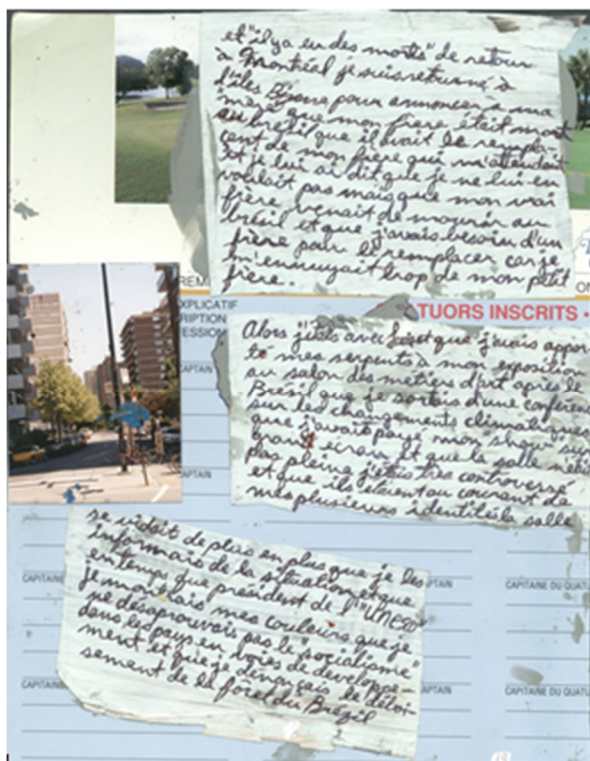 et "il y a eu des morts" de retour
à Montréal je suis returné à
l'îles Bizard pour annoncer a ma
mère que mon frère était mort
au brésil que il avait le rempla-
cent de mon frère qui m'attendait
et je lui ai dit que je ne lui en
voulait pas mais que mon vrai
frère venait de mourir au
brésil et que j'avais besoin d'un
frère pour le remplacer car je
m'ennuyait trop de mon petit
frère.
EXPLICATIF
TUORS INSCRITS •
Alors j'étais avec et que j'avais appor-
té mes serpents à mon exposition
au salon des métiers d'art après le
Brésil que je sortais d'une conférence
sur les changements climatiques
que j'avait payé mon show sur
grand écran et que la salle
pas pleine j'étais très controversé
et que ils étaient au courant de
mes plusieurs identités la salle
se vidait de plus en plus que je les
informais de la situation et que
en temps que président de l'"UNESO"
je montrais mes couleurs que je
ne désaprouvais pas le "socialisme"
dans les pays en voies de developpe-
ment et que je dénonçais le déboi-
sement de la forêt du Brézil
CAPTAIN
CAPITAINE
CAPITAINE DU QUATU
CAPTAIN
CAPITAINE DU QUATU